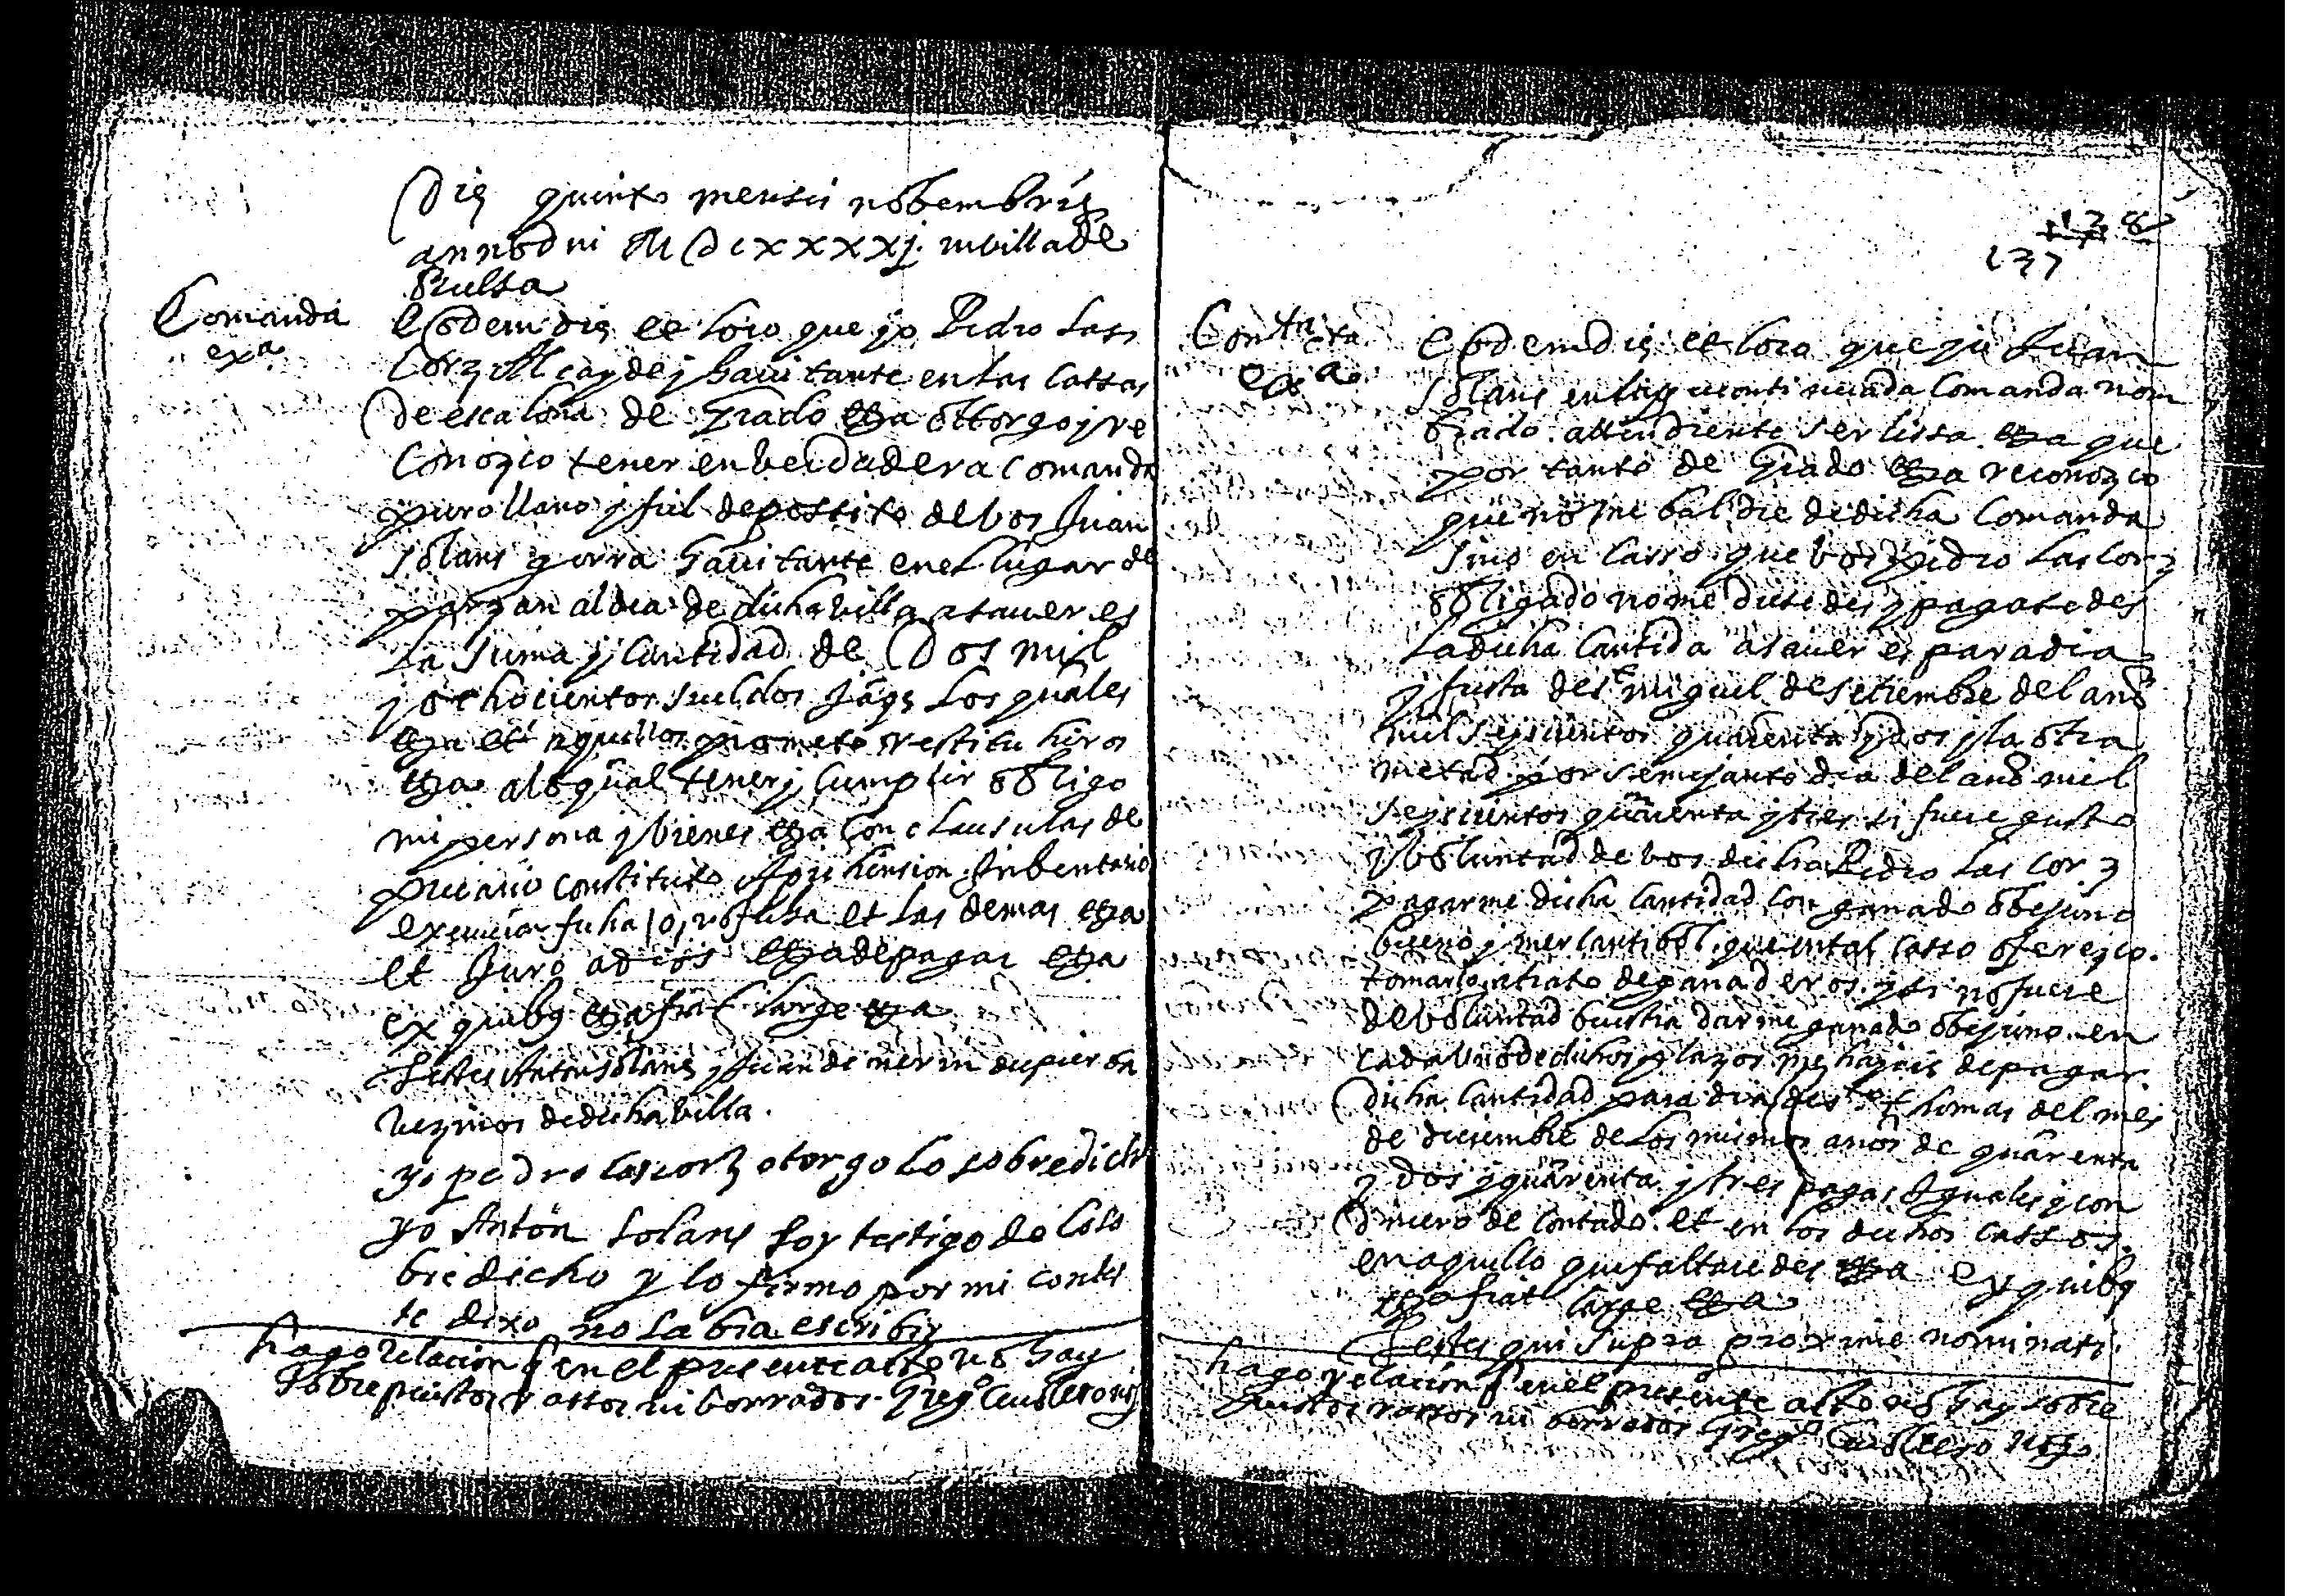 Die quinto mensis nobembris
anno dni M DCXXXXj. in villa de
Bielssa
Comanda
exa
Eodem die et loco que yo Pedro Las
Corz Alcayde y havitante en las cassas
de escalona de grado etza ottorgo y re
Conozco tener en berdadera comanda
puro llano y fiel depossito de vos Juan
solans gorra havitante en el lugar de
parzan aldea de dicha villa a saver es
La suma y Cantidad de Dos mil
y ochocientos sueldos Jaqs Los quales
etza et aquellos prometo restituhiros
etza a lo qual tener y cumplir obligo
mi persona y bienes etza con clausulas de
precario constituto Aprehension Inbentario
execucion
et las demas etza
et Juro a dios etza de pagar etza
ex quibs etza fiat large etza
Testes Anton solans y Juan de nerin
vezinos de dicha villa.
yo pedro lascorz otorgo lo sobredicho
yo Antón Solans soy testigo de lo so
bredicho y lo firmo por mi contes
te dixo no sabia escribir
hago relacion q en el presente acto no hay
sobrepuestos rassos ni borrados. Gregº Cavallero notº
138
137
Contracta
exa
Eodem die et loco que yo Juan
solans en la precontinuada Comanda nom
brado. attendiente ser lissa etza que
por tanto de grado etza reconozco
que no me baldre de dicha Comanda
sino en casso que vos pedro Lascorz
obligado no me diesedes y pagasedes
La dicha Cantida a saver es para dia
y fiesta de st miguel de setiembre del año
mil seyscientos quarenta y dos y la otra
metad por semejante dia del año mil
seyscientos quarenta y tres si fuere gusto
y voluntad de vos dicho Pedro Las corz
pagarme dicha Cantidad con ganado obejuno
bueno y mercantibol. que en tal casso oferezco.
tomarlo a trato de ganaderos. y si no fuere
de voluntad buestra darme ganado obejuno en
cada uno de dichos plazos me hajais de pagar
dicha Cantidad para dia de sto thomas del mes
de diciembre de los mismos años de quarenta
y dos y quarenta y tres pagas Iguales y con
dinero de contado. et en los dichos cassos.
en aquello que faltaredes etza ex quibs
etza fiat large etza
Testes qui supra proxime nominati.
hago relacion q en el presente acto no hay sobre
puestos rassos ni borrados Gregº Cavallero notº